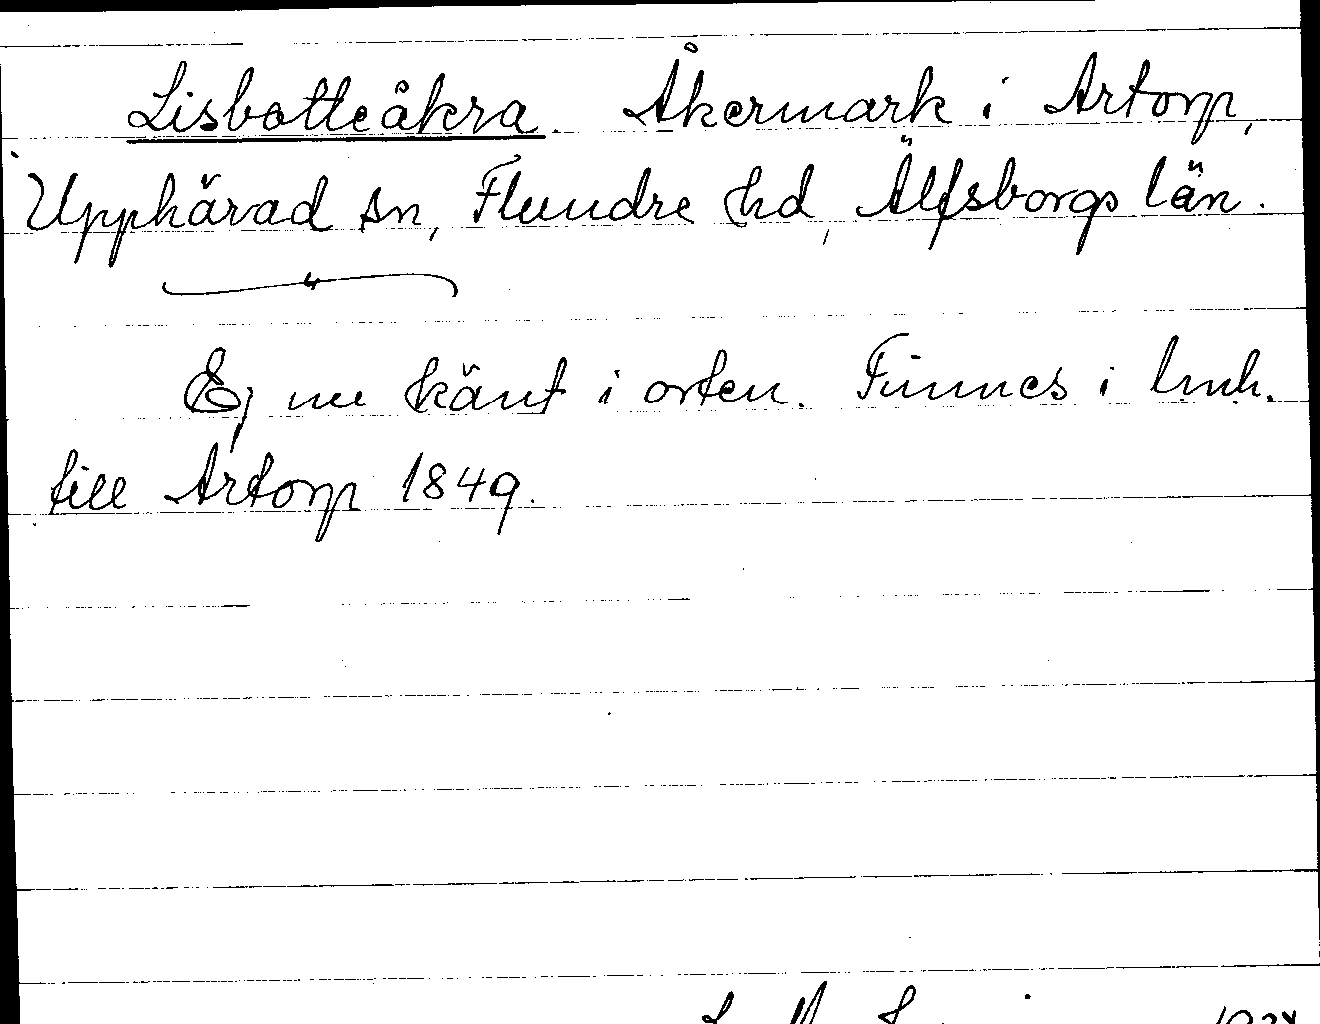 Lisbotteåkra. Åkermark i Artorp,
Upphärad sn, Flundre hd, Älfsborgs län.
Ej nu känt i orten. Finnes i lmh.
till Artorp 1849.